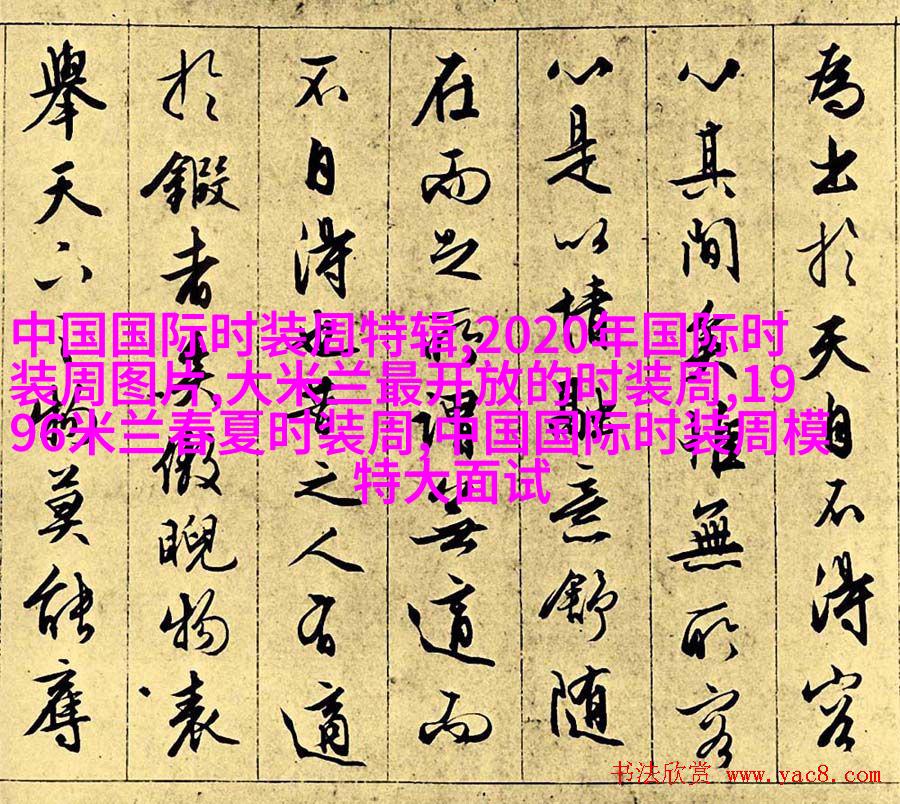 為出於天自不得容
心其间矣惟無所容
心是以情融意舒随
在而足所謂無適而
不自得也昔之人有適
於鍜者矣傲睨物表
舉天下之物莫能
中国国际时装周特辑,2020年国际时
装周图片,大米兰最开放的时装周,19
96米兰春夏时装周,中国国际时装周模
特大面试
书法欣赏 www.yac8.com